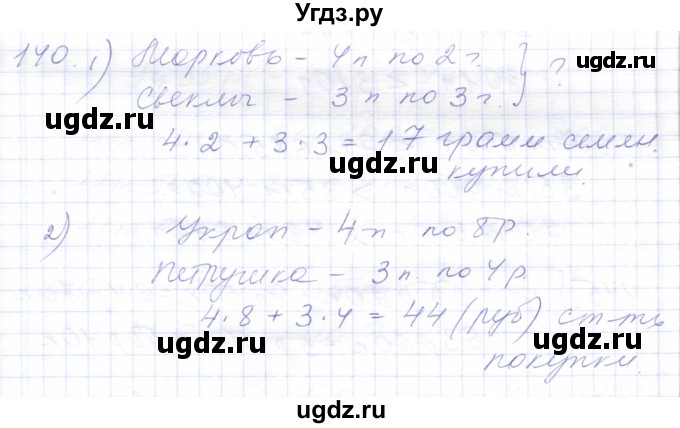 Угдз.ру
140. 1) Морковь - 4п по 2 г. } ?
Свеклы - 3 п по 3 г.
4 · 2 + 3 · 3 = 17 грамм семян
купили.
2) Укроп - 4 п. по 8 р.
Петрушка - 3 п. по 4 р.
4 · 8 + 3 · 4 = 44 (руб) ст-ть
покупки.
ugdz.ru
ugdz.ru
ugdz.ru
ugdz.ru
ugdz.ru
ugdz.ru
ugdz.ru
ugdz.ru
ugdz.ru